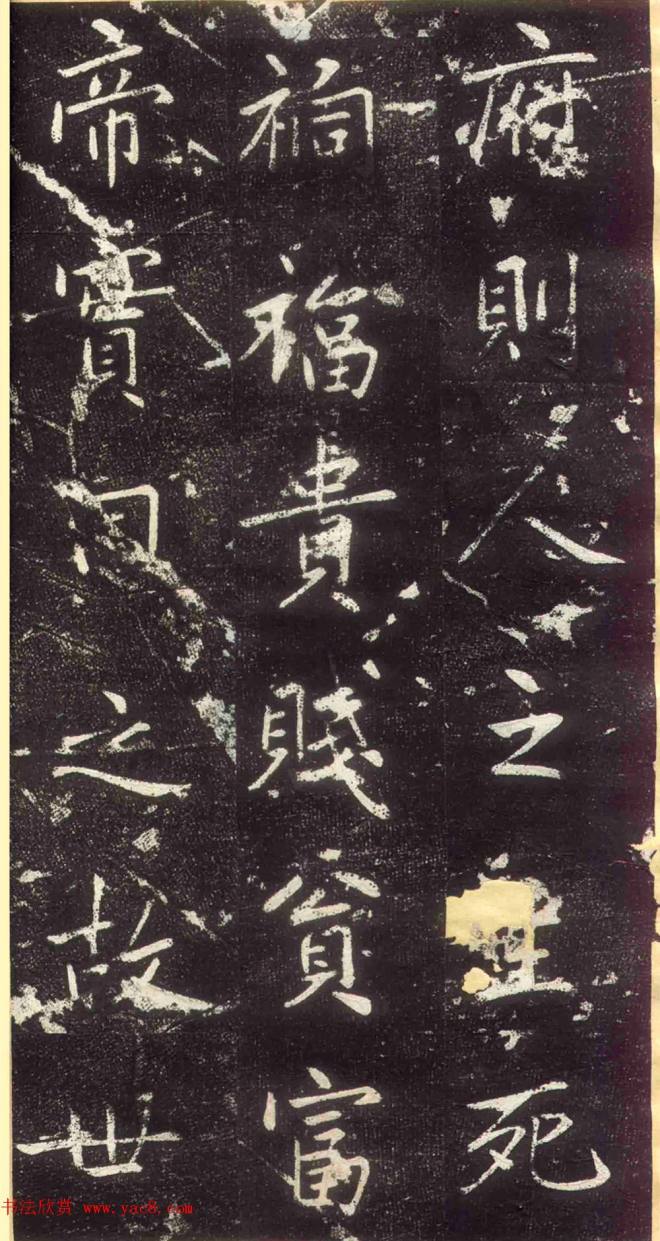 府則人之生死
禍福貴賤貧富
帝實司之故世
书法欣赏 www.yac8.com